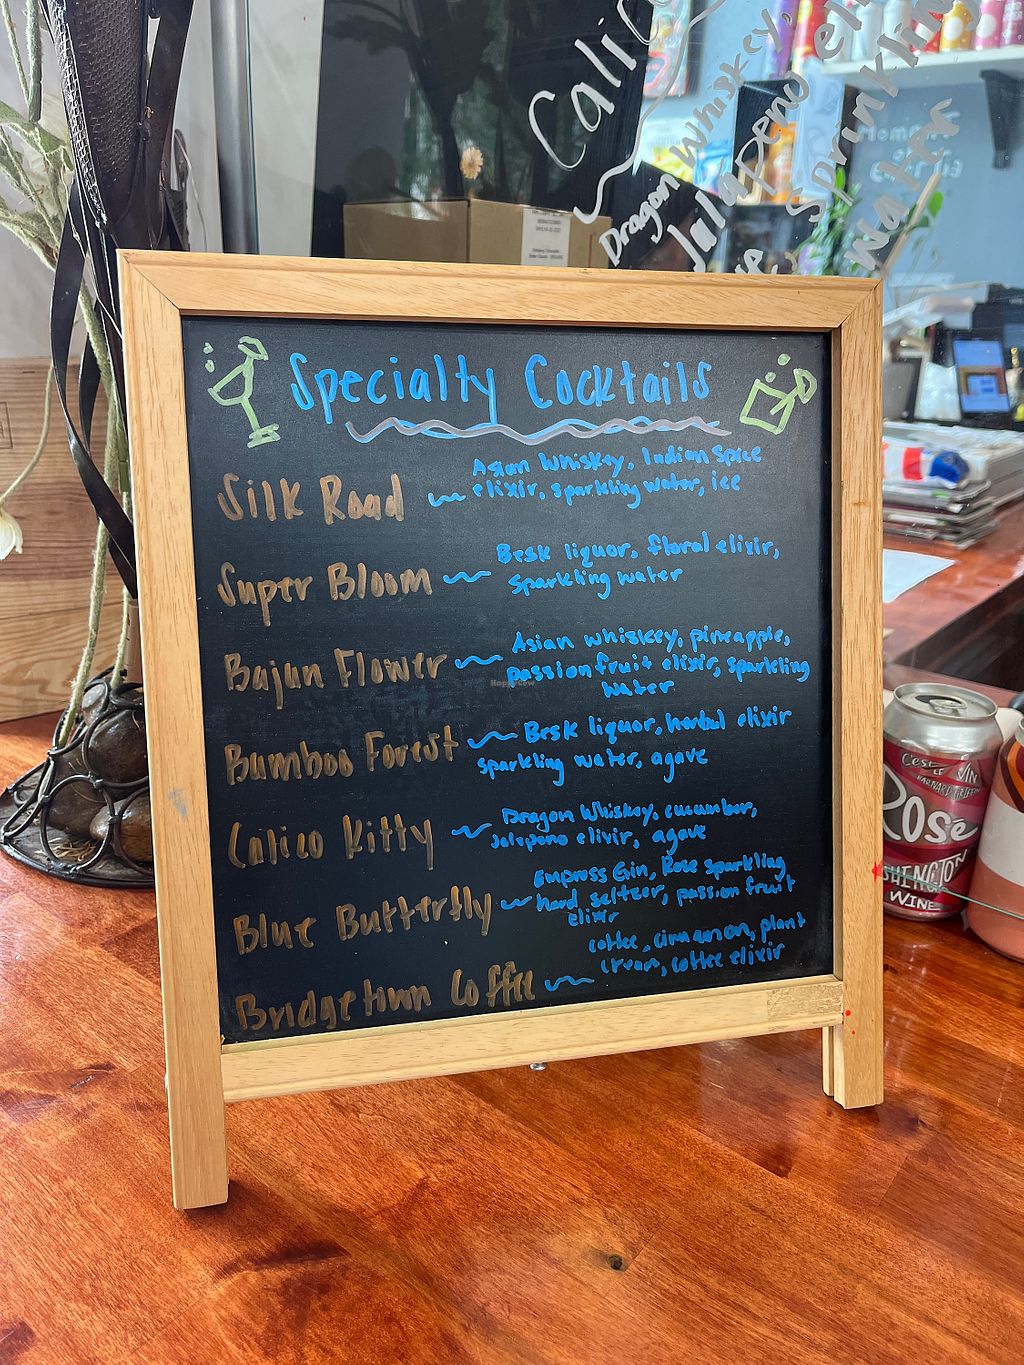 Calico
Dragon Whiskey,
Jalapeno eli
Sprinkling
water
Specialty Cocktails
Silk Road
Asian Whiskey, Indian Spice
elixir, sparkling water, ice
Super Bloom
Besk liquor, floral elixir,
sparkling water
Bajan Flower
Asian whiskey, pineapple,
passion fruit elixir, sparkling
water
Bamboo Forest
Besk liquor, herbal elixir
sparkling water, agave
Calico Kitty
Dragon Whiskey, cucumber,
Jalepeno elixir, agave
Blue Butterfly
Empress Gin, Rose sparkling
hard seltzer, passion fruit
elixir
Bridgetown Coffee
coffee, cinnamon, plant
cream, coffee elixir
C'est
LE VIN
BARNARD GRIFFIN
ROSÉ
WASHINGTON
WINE